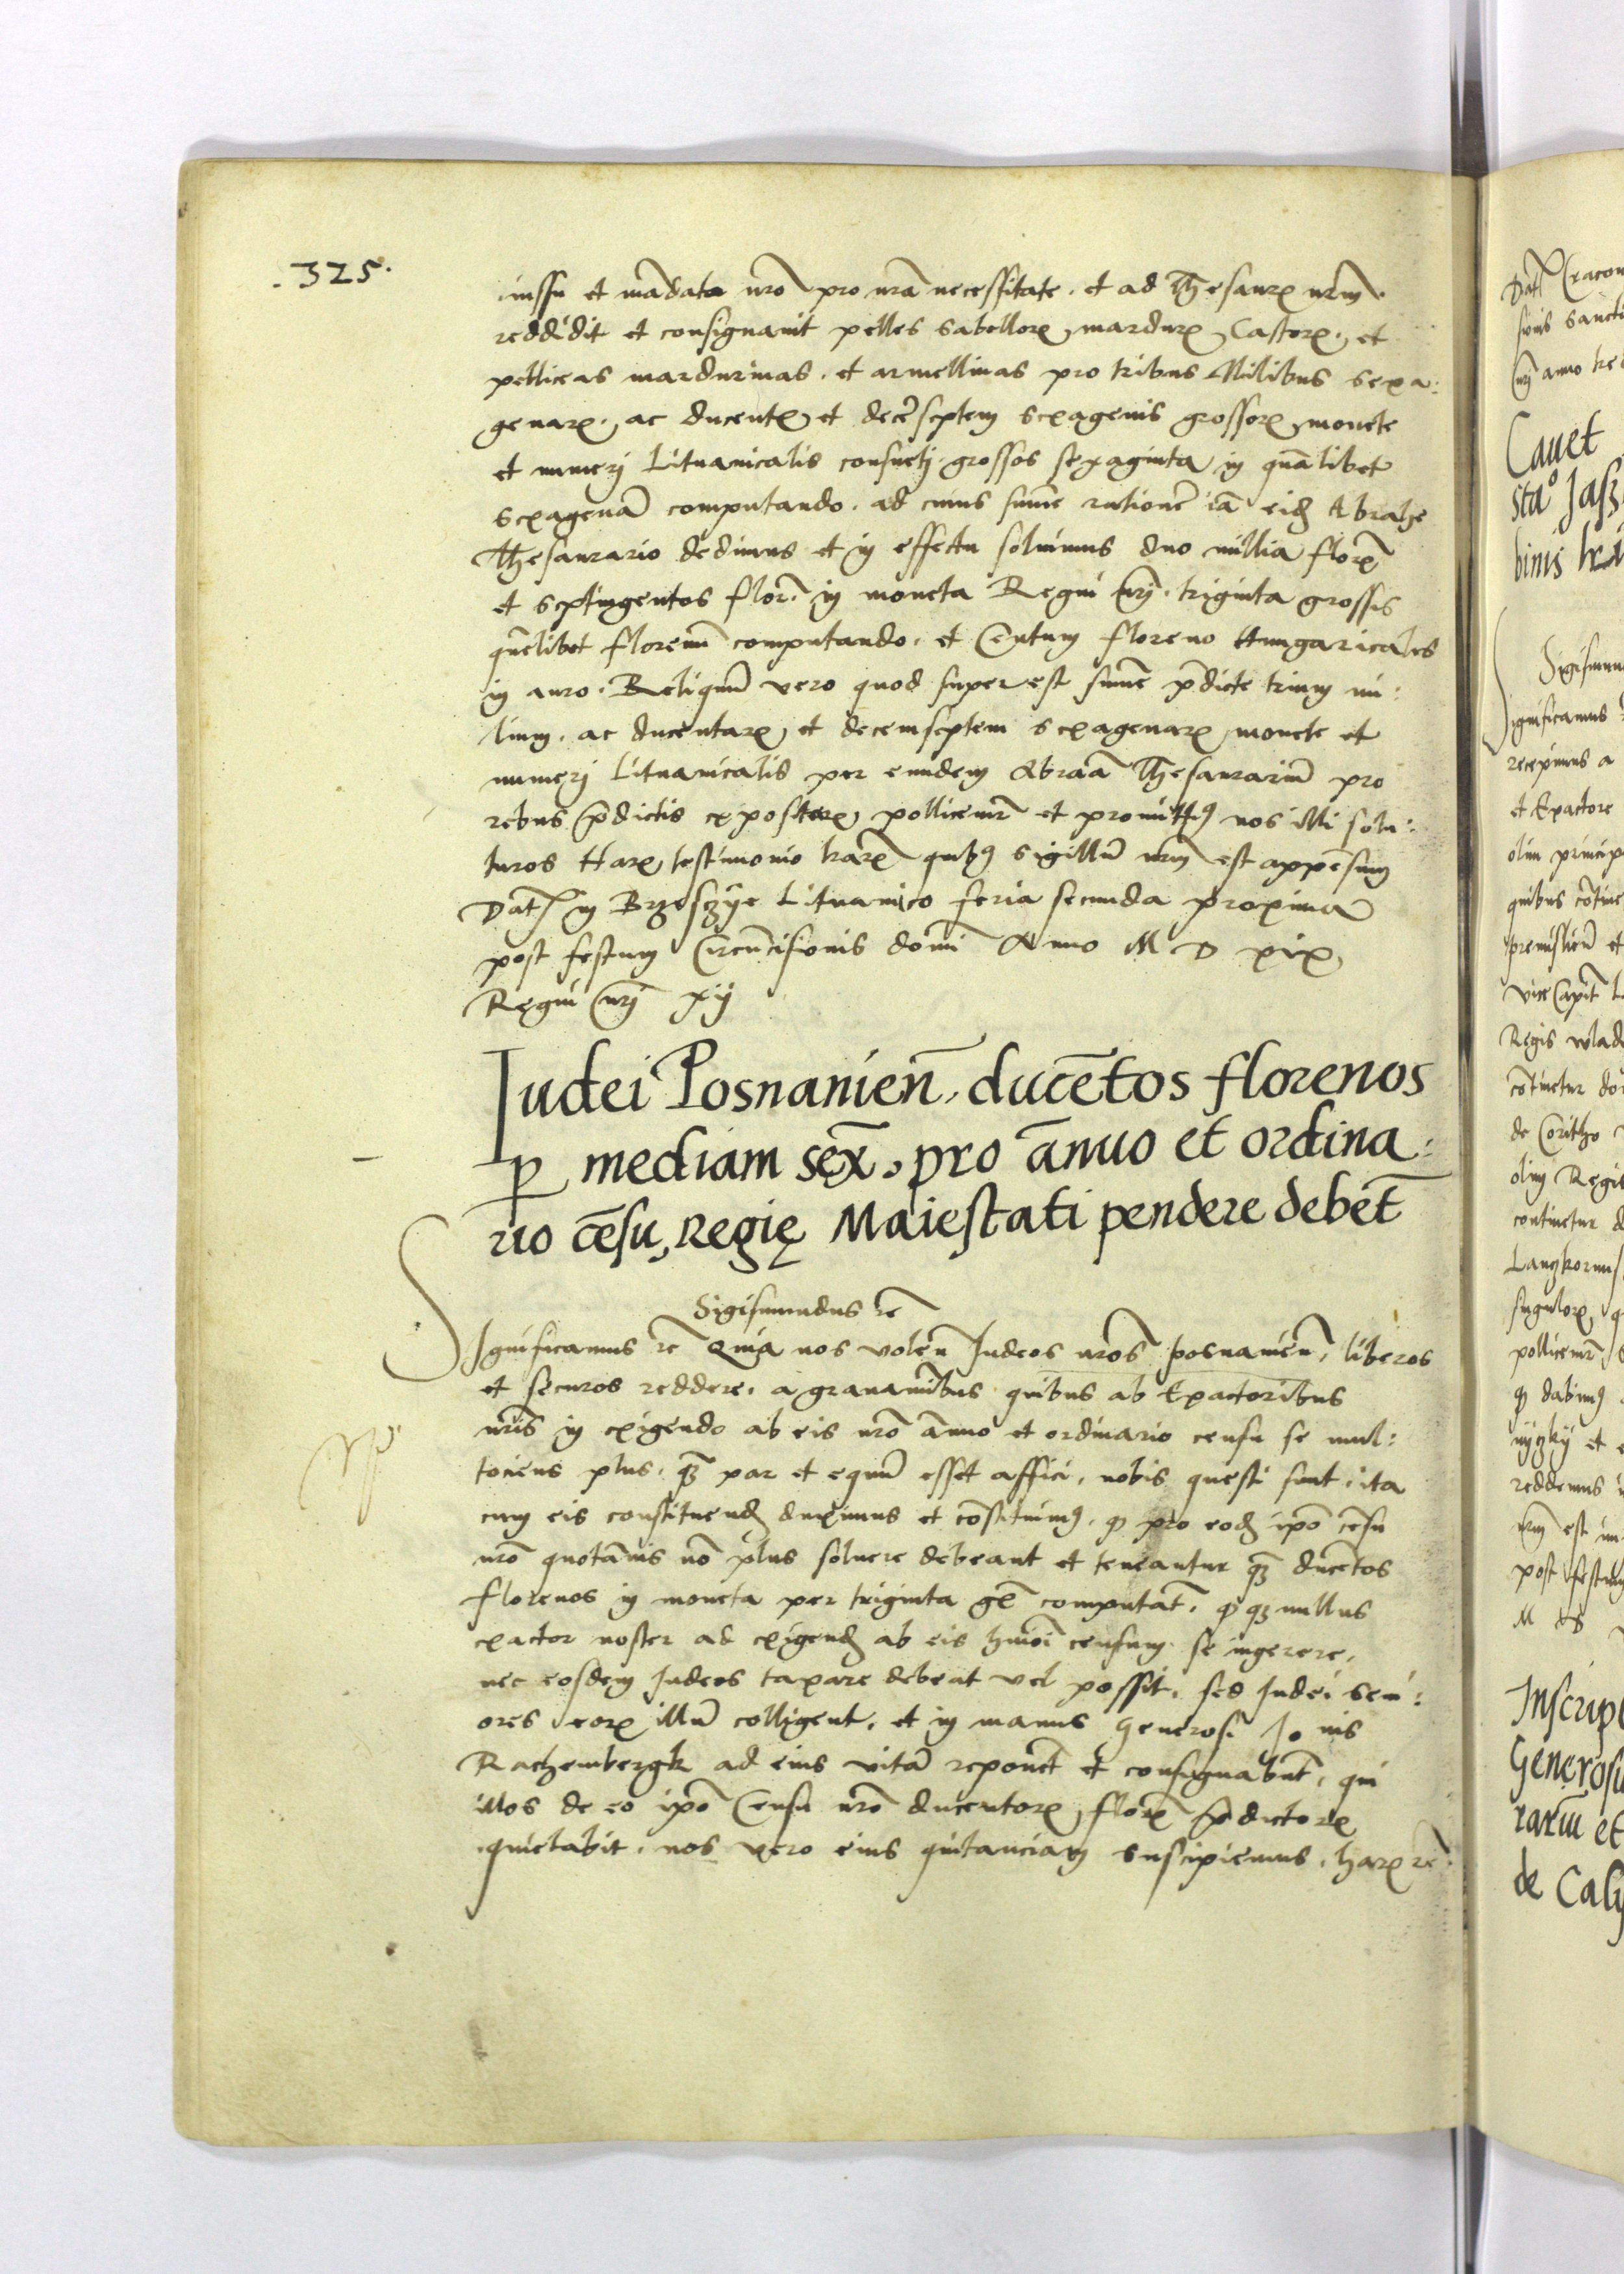 .325.
iussu et mãdata nr̃o pro nr̃a necessitate. et ad Thesaurꝝ nr̃m.
reddidit et consignavit pelles sabellorꝝ, mardurꝝ, Castorꝝ, et
pelliceas mardurinas. et armellinas pro tribus Milibus sexa:
genarꝝ. ac ducentꝝ et decẽseptem sexagenis grossorꝝ, monete
et numerj Lituanicalis consuetj. grossos sexaginta in quãlibet
sexagenã computando. ad cuius sum̃e rationẽ iã eidẽ Abrahe
Thesaurario dedimus et in effectu solvimus duo millia florẽ
et septingentos florẽ. in moneta Regni nr̃j. triginta grossis
quẽlibet florenũ computando. et Centum floreno Hungaricales
in auro. Reliquũ vero quod superest sum̃e p̃dicte trium mi:
lium. ac ducentarꝝ, et decemseptem sexagenarꝝ, monete et
numerj Lituanicalis per eundem Abraã Thesaurariũ pro
rebus p̃dictis expositarꝝ, pollicemr̃ et promittimꝰ nos illi solu:
turos Harꝝ, testimonio harꝝ quibꝰ sigillũ nr̃m est appẽsum
Datꝭ in Brzesczye Lituanico feria secunda proxima
post festum Circũcisionis domĩ Anno M D xix,
Regni nr̃j xij
Iudei Posnanieñ, ducẽtos florenos
ꝑ mediam sex̃. pro ãnuo et ordina:
rio cẽsu, Regię Maiestati pendere debẽt
Sigismundus rẽ
Significamus rẽ Quia nos voleñ Iudeos nr̃os posnanieñ, liberos
et securos reddere. a gravaminibus quibus ab Exactoribus
nr̃is in exigendo ab eis nr̃o ãnuo et ordinario censu se mul:
tociens plus. quã par et equũ esset affici, nobis questi sunt. ita
cum eis constituendꝭ duximus et cõstituimꝰ. ꝙ pro eodꝭ ip̃o cẽsu
nr̃o quotãnis nõ plus solvere debeant et teneantur quã ducẽtos
florenos in moneta per triginta gꝭ computãt. ꝙqꝫ nullus
exactor noster ad exigendꝭ ab eis hmõi censum se ingerere,
nec eosdem Iudeos taxare debeat vel possit. sed Iudei seni:
ores eorꝝ illũ colligent. et in manus Generosi Jo nis
Rachembergk ad eius vitã reponẽt et consignabũt. qui
illos de eo ip̃o Censu nr̃o ducentorꝝ, florẽ p̃dictorꝝ
quietabit. nos vero eius quitanciam suscipiemus. harꝝ rẽ.
Datꝭ Cracov
sionis Sancti
nr̃j anno
Cavet
binis
Sigismun
Significamus
recepimus a
et Exactore
olim princip
quibus cõtine
premislieñ et
vice Capit̃
Regis Wlad
cõtinetur do
olim Regis
continetur
singulorꝝ, q
pollicemr̃
ꝙ dabimꝰ
reddemus
nr̃m est im
post festum
M D
Inscript
Generosu
rariũ et
de